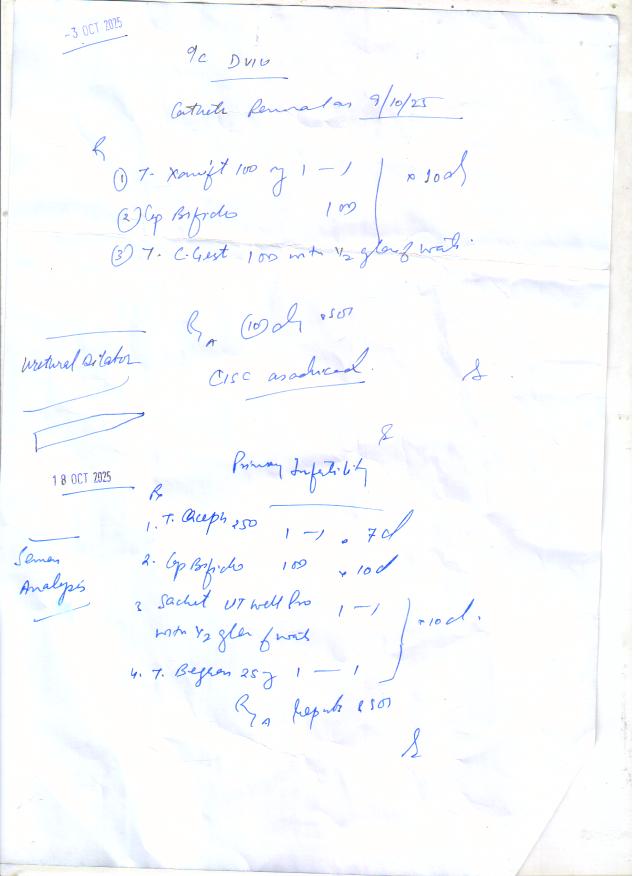 -3 OCT 2025
o/c DVIU
Catheter Removal on 9/10/25
R
① T. 100 mg 1 - 1
② Cap Bifido 100 × 10d
③ T. C-Gest 100 with 1/2 glass of water.
R/A 10 d SOS
Uretural Dilator
CISC as advised.
Primary Infertility
18 OCT 2025
Rx
1. T. 250 1 - 1 × 7d
Semen
Analysis
2. Cap Bifido 100 × 10d
3 Sachet UTWell Pro 1 - 1
with 1/2 glass of water × 10d.
4. T. 25 mg 1 - 1
R/A Reports SOS